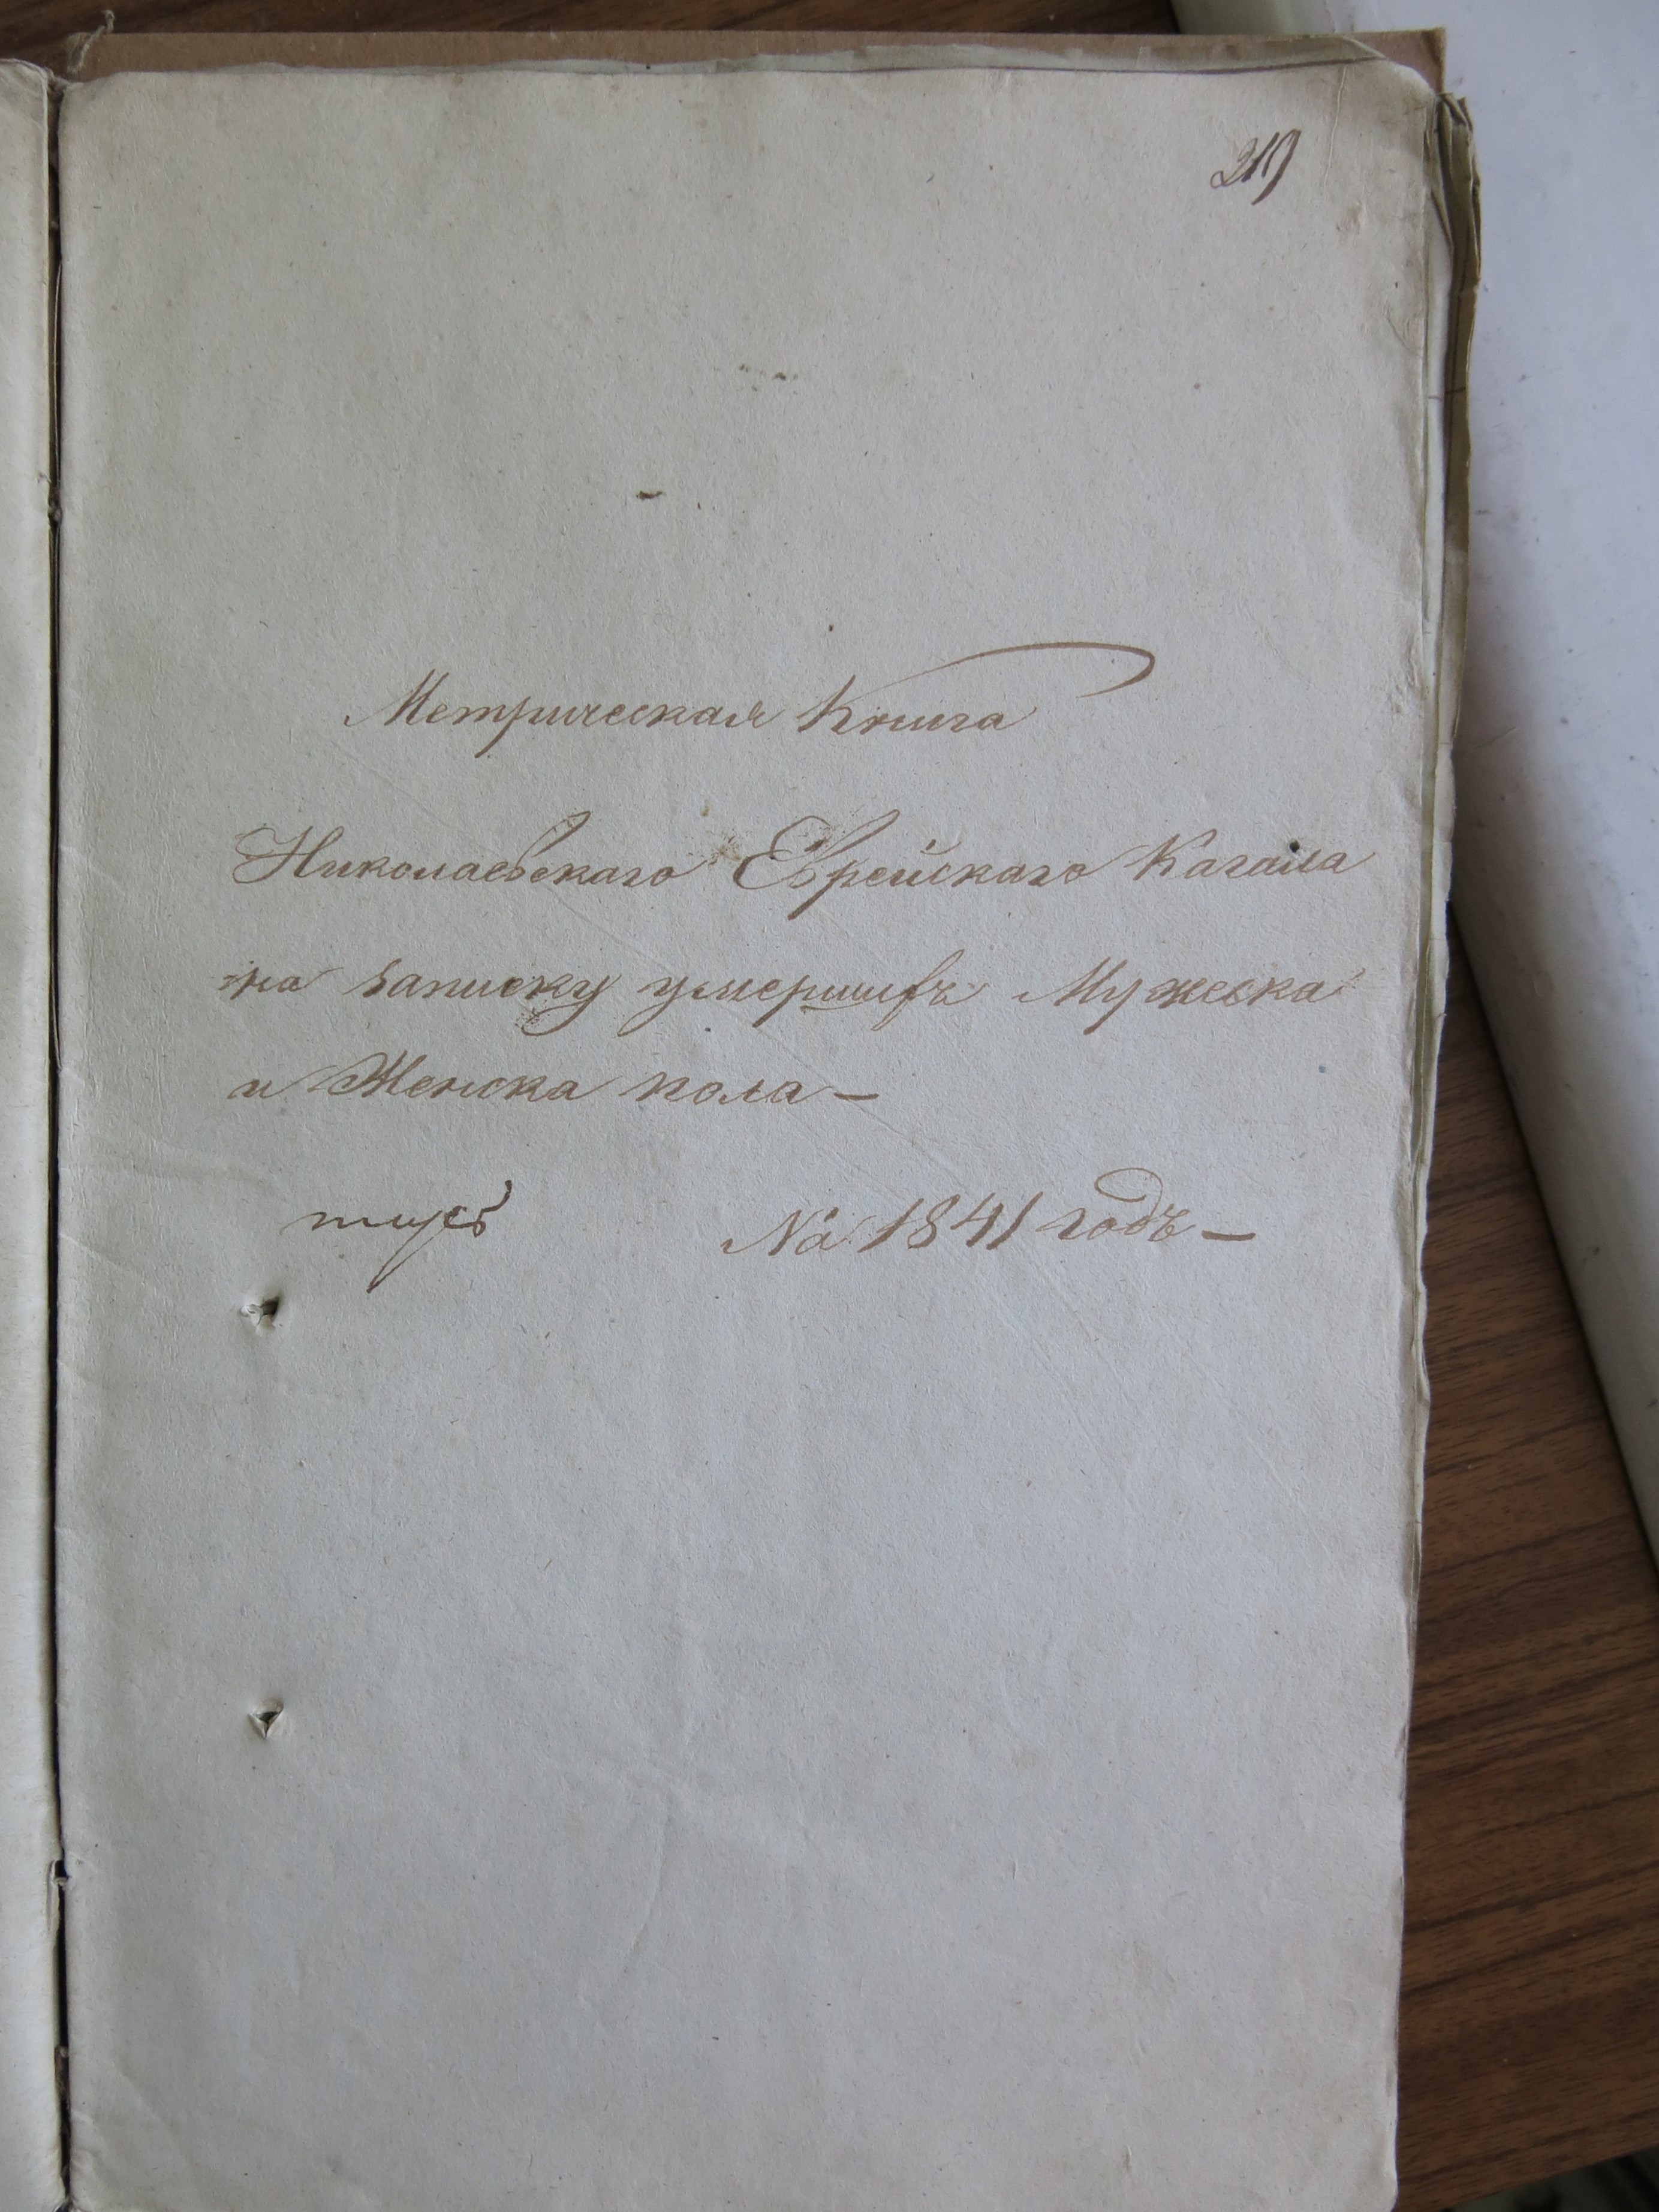 219
Метрическая Книга
Николаевскаго Еврейскаго Кагала
на записку умершихъ Мужеска
и Женска пола —
На 1841 годъ —